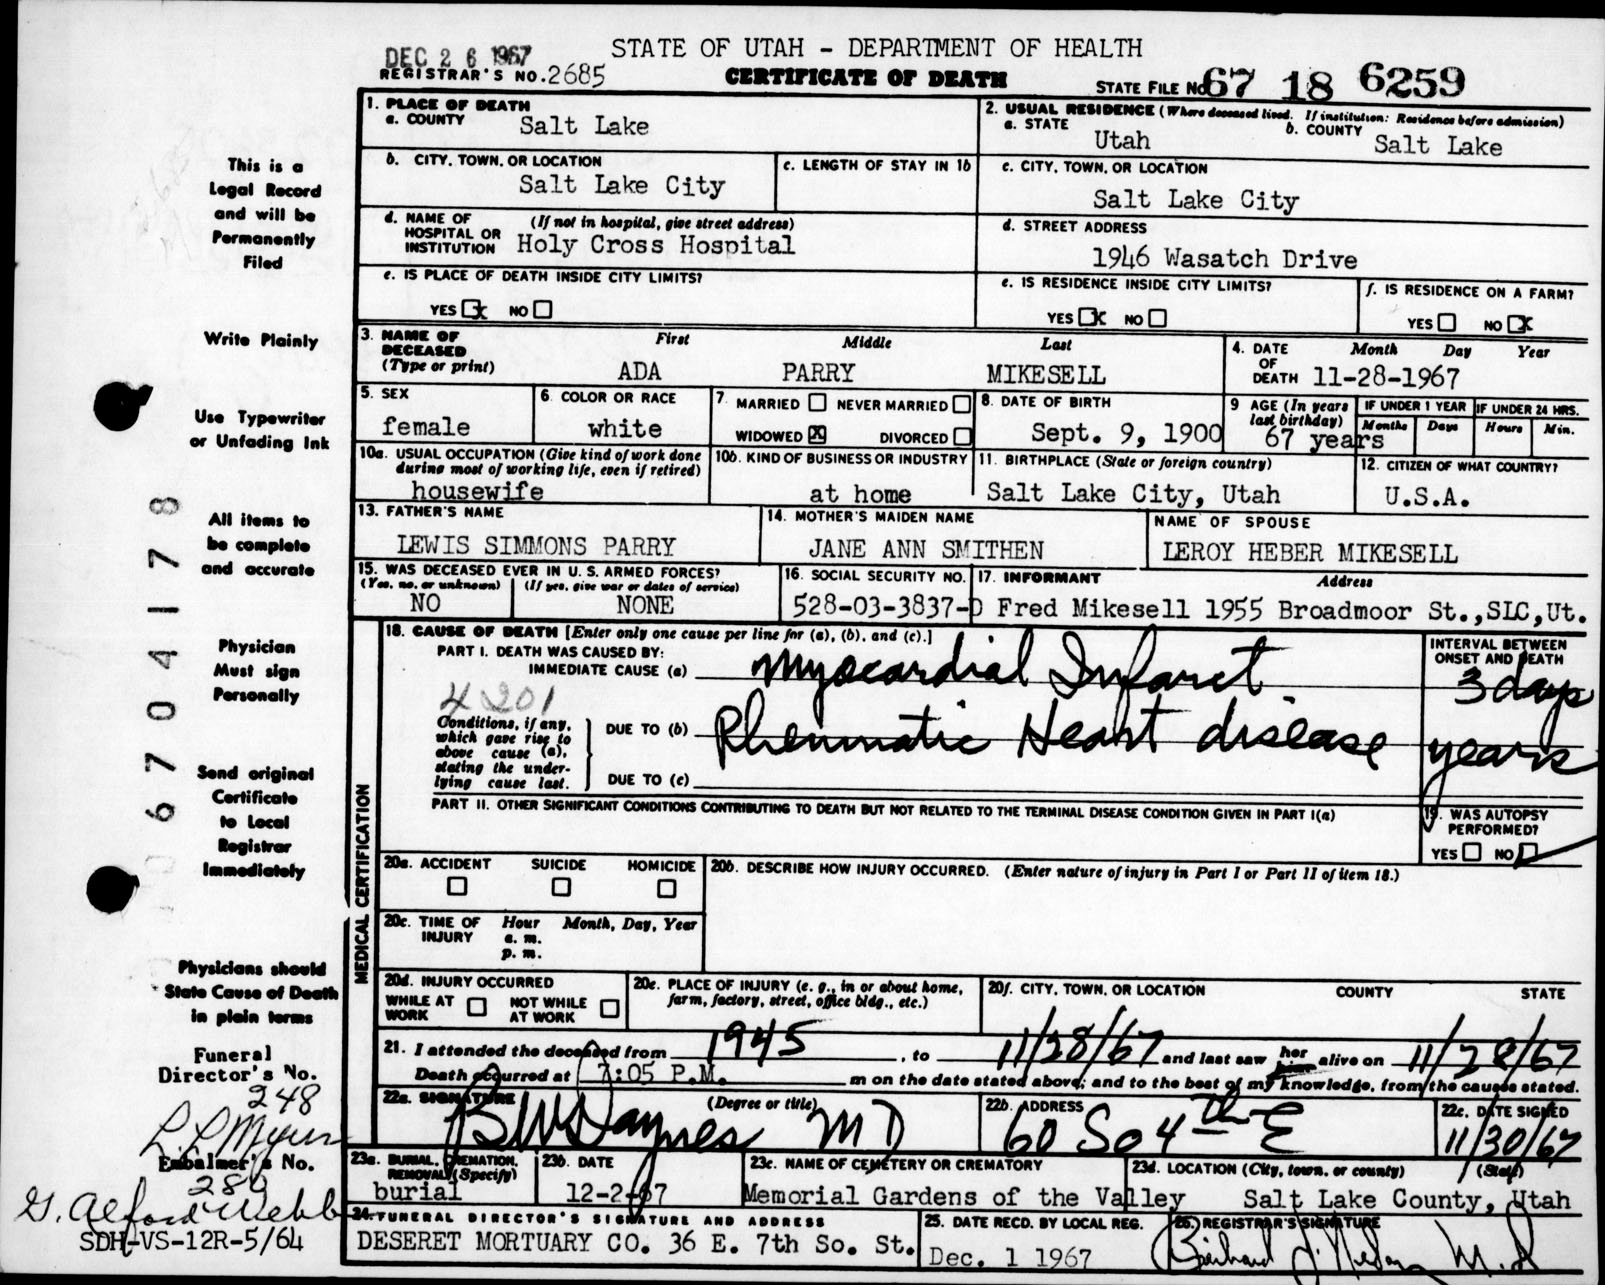 DEC 26 1967
STATE OF UTAH - DEPARTMENT OF HEALTH
REGISTRAR'S NO. 2685
CERTIFICATE OF DEATH
STATE FILE NO. 67 18 6259
This is a
Legal Record
and will be
Permanently
Filed
Write Plainly
Use Typewriter
or Unfading Ink
All items to
be complete
and accurate
Physician
Must sign
Personally
Send original
Certificate
to Local
Registrar
Immediately
Physicians should
State Cause of Death
in plain terms
Funeral
Director's No.
248
L L Myers
Embalmer's No.
280
G. Alford Webb
SDH-VS-12R-5/64
67041778
1. PLACE OF DEATH
a. COUNTY Salt Lake
b. CITY, TOWN, OR LOCATION
Salt Lake City
c. LENGTH OF STAY IN 1b
d. NAME OF HOSPITAL OR INSTITUTION (If not in hospital, give street address)
Holy Cross Hospital
e. IS PLACE OF DEATH INSIDE CITY LIMITS?
YES X NO
2. USUAL RESIDENCE (Where deceased lived. If institution: Residence before admission)
a. STATE Utah
b. COUNTY Salt Lake
c. CITY, TOWN, OR LOCATION
Salt Lake City
d. STREET ADDRESS
1946 Wasatch Drive
e. IS RESIDENCE INSIDE CITY LIMITS?
YES X NO
f. IS RESIDENCE ON A FARM?
YES NO X
3. NAME OF DECEASED (Type or print)
First Middle Last
ADA PARRY MIKESELL
4. DATE OF DEATH Month Day Year
11-28-1967
5. SEX
female
6. COLOR OR RACE
white
7. MARRIED NEVER MARRIED
WIDOWED X DIVORCED
8. DATE OF BIRTH
Sept. 9, 1900
9 AGE (In years last birthday)
67 years
IF UNDER 1 YEAR
Months Days
IF UNDER 24 HRS.
Hours Min.
10a. USUAL OCCUPATION (Give kind of work done
during most of working life, even if retired)
housewife
10b. KIND OF BUSINESS OR INDUSTRY
at home
11. BIRTHPLACE (State or foreign country)
Salt Lake City, Utah
12. CITIZEN OF WHAT COUNTRY?
U.S.A.
13. FATHER'S NAME
LEWIS SIMMONS PARRY
14. MOTHER'S MAIDEN NAME
JANE ANN SMITHEN
NAME OF SPOUSE
LEROY HEBER MIKESELL
15. WAS DECEASED EVER IN U. S. ARMED FORCES?
(Yes, no, or unknown) (If yes, give war or dates of service)
NO NONE
16. SOCIAL SECURITY NO.
528-03-3837-D
17. INFORMANT Address
Fred Mikesell 1955 Broadmoor St.,SLC,Ut.
MEDICAL CERTIFICATION
18. CAUSE OF DEATH [Enter only one cause per line for (a), (b), and (c).]
PART I. DEATH WAS CAUSED BY:
IMMEDIATE CAUSE (a) Myocardial Infarct
INTERVAL BETWEEN
ONSET AND DEATH
3 days
4201
Conditions, if any,
which gave rise to
above cause (a),
stating the under-
lying cause last.
DUE TO (b) Rheumatic Heart disease
years
DUE TO (c)
PART II. OTHER SIGNIFICANT CONDITIONS CONTRIBUTING TO DEATH BUT NOT RELATED TO THE TERMINAL DISEASE CONDITION GIVEN IN PART I(a)
19. WAS AUTOPSY
PERFORMED?
YES NO
20a. ACCIDENT SUICIDE HOMICIDE
20b. DESCRIBE HOW INJURY OCCURRED. (Enter nature of injury in Part I or Part II of item 18.)
20c. TIME OF INJURY Hour Month, Day, Year
a. m.
p. m.
20d. INJURY OCCURRED
WHILE AT WORK NOT WHILE AT WORK
20e. PLACE OF INJURY (e. g., in or about home,
farm, factory, street, office bldg., etc.)
20f. CITY, TOWN, OR LOCATION COUNTY STATE
21. I attended the deceased from 1945, to 11/28/67 and last saw her him alive on 11/28/67
Death occurred at 7:05 P.M. m on the date stated above; and to the best of my knowledge, from the causes stated.
22a. SIGNATURE (Degree or title)
B W Daynes MD
22b. ADDRESS
60 So 4th E
22c. DATE SIGNED
11/30/67
23a. BURIAL, CREMATION,
REMOVAL (Specify)
burial
23b. DATE
12-2-67
23c. NAME OF CEMETERY OR CREMATORY
Memorial Gardens of the Valley
23d. LOCATION (City, town, or county) (State)
Salt Lake County, Utah
24. FUNERAL DIRECTOR'S SIGNATURE AND ADDRESS
DESERET MORTUARY CO. 36 E. 7th So. St.
25. DATE RECD. BY LOCAL REG.
Dec. 1 1967
26. REGISTRAR'S SIGNATURE
M.D.